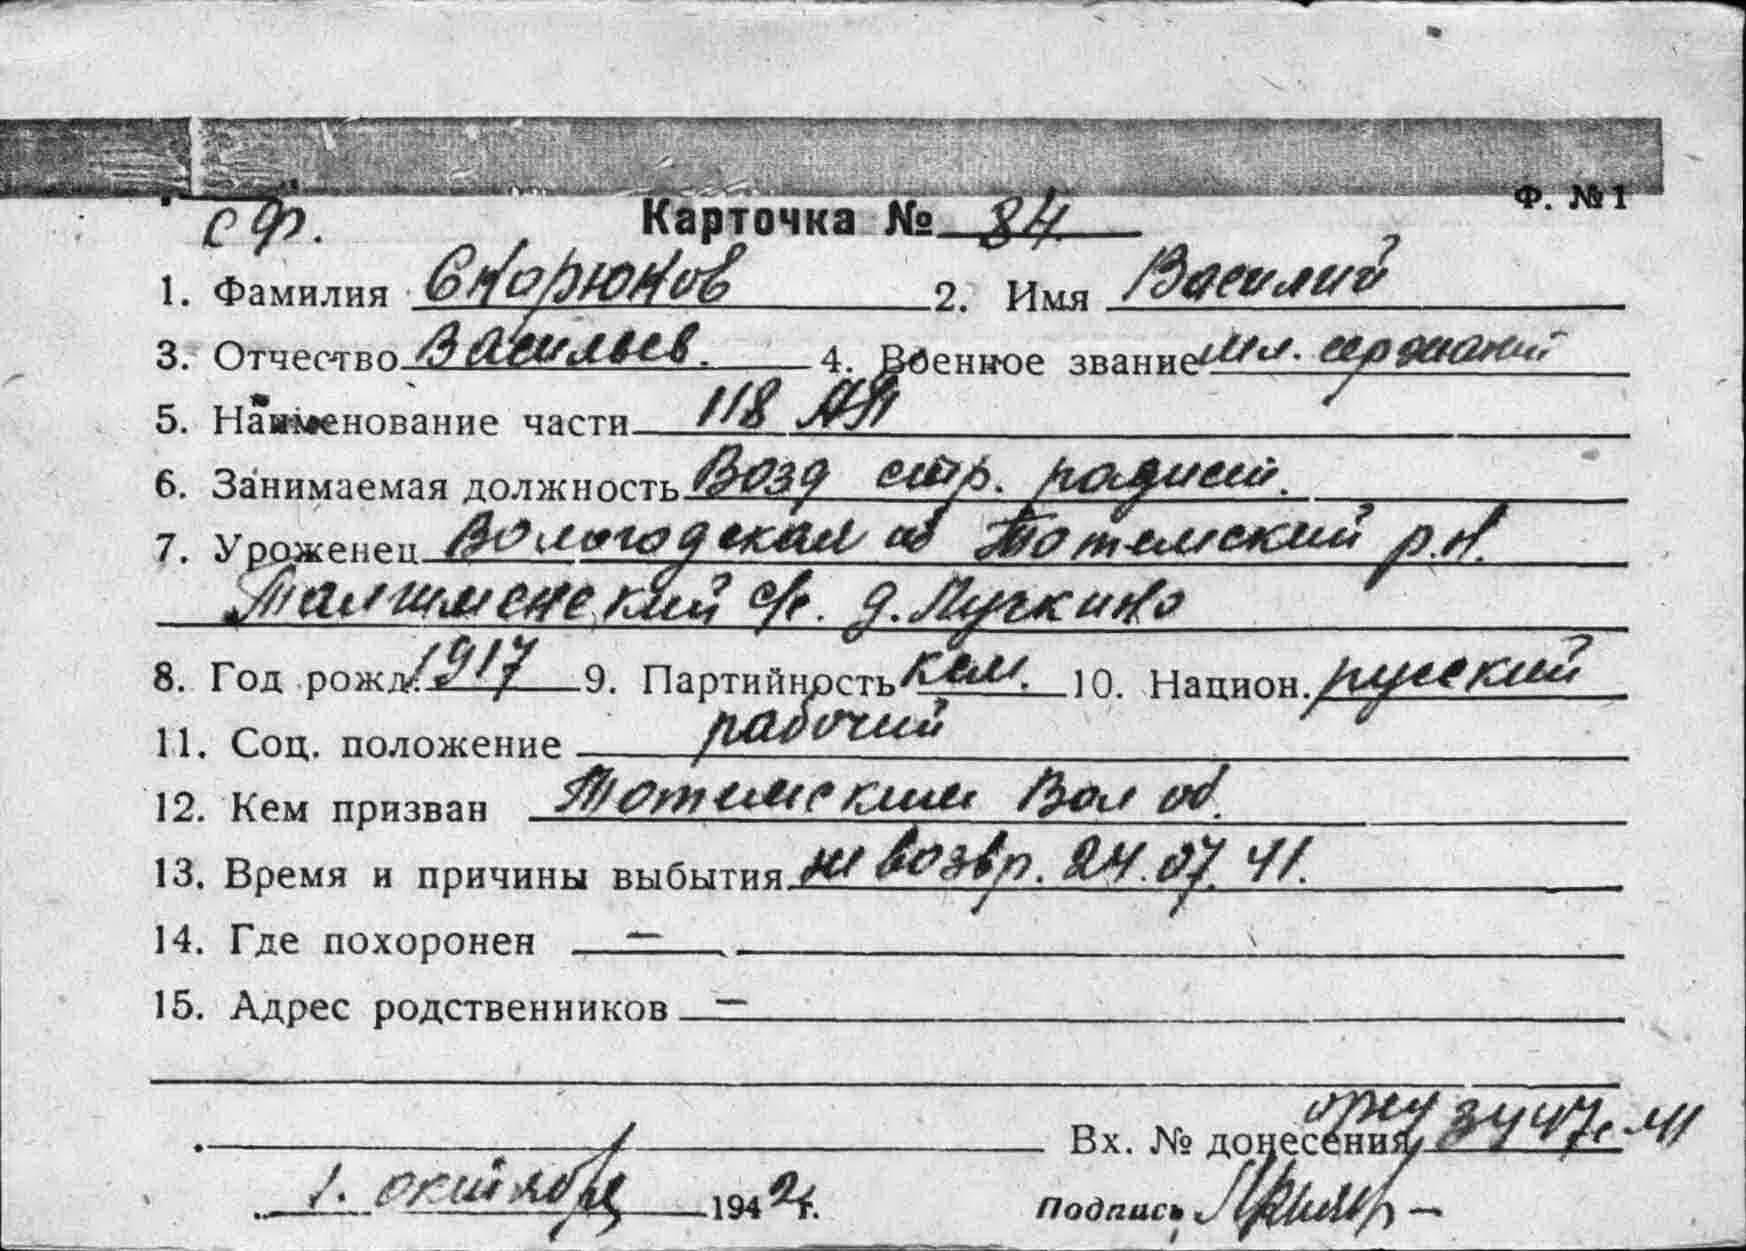 Ф. №1
СФ. Карточка № 84
1. Фамилия Скорюков 2. Имя Василий
3. Отчество Васильев. 4. Военное звание мл. сержант
5. Наименование части 118 АП
6. Занимаемая должность Возд стр. радист.
7. Уроженец Вологодская об Тотемский р.н.
Талицменский с/с. д. Мучкино
8. Год рожд. 1917 9. Партийность ксм. 10. Национ. русский
11. Соц. положение рабочий
12. Кем призван Тотемским Вол об.
13. Время и причины выбытия не возвр. 24.07.41.
14. Где похоронен —
15. Адрес родственников —
Вх. № донесения
1. октября 1942г. Подпись